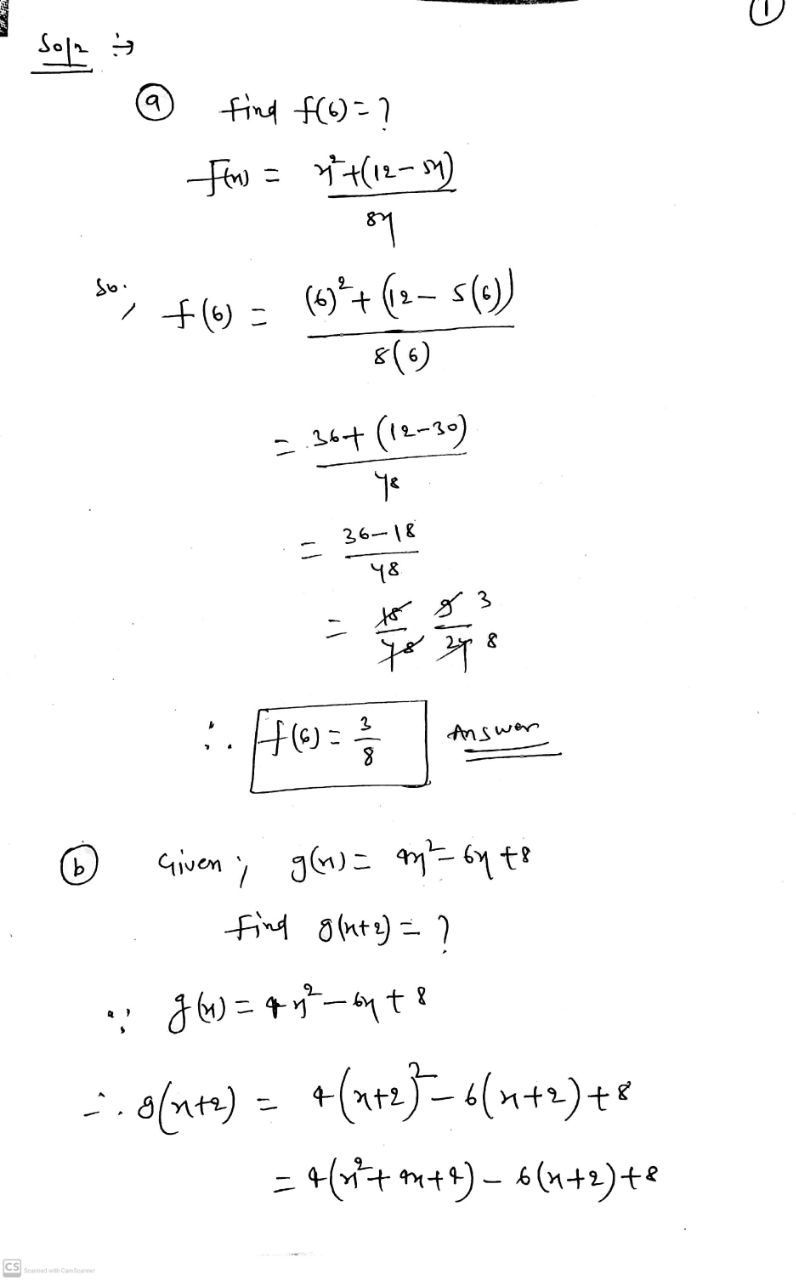 ①
Sol⁠n ⇒
ⓐ find f(6) = ?
f(x) = x²+(12-5x)
8x
So, f(6) = (6)²+(12-5(6))
8(6)
= 36+(12-30)
48
= 36-18
48
= 18 9 3
48 24 8
∴ f(6) = 3/8 Answer
ⓑ Given; g(x) = 4x²-6x+8
find g(x+2) = ?
∵ g(x) = 4x²-6x+8
∴ g(x+2) = 4(x+2)²-6(x+2)+8
= 4(x²+4x+4)-6(x+2)+8
CS Scanned with CamScanner